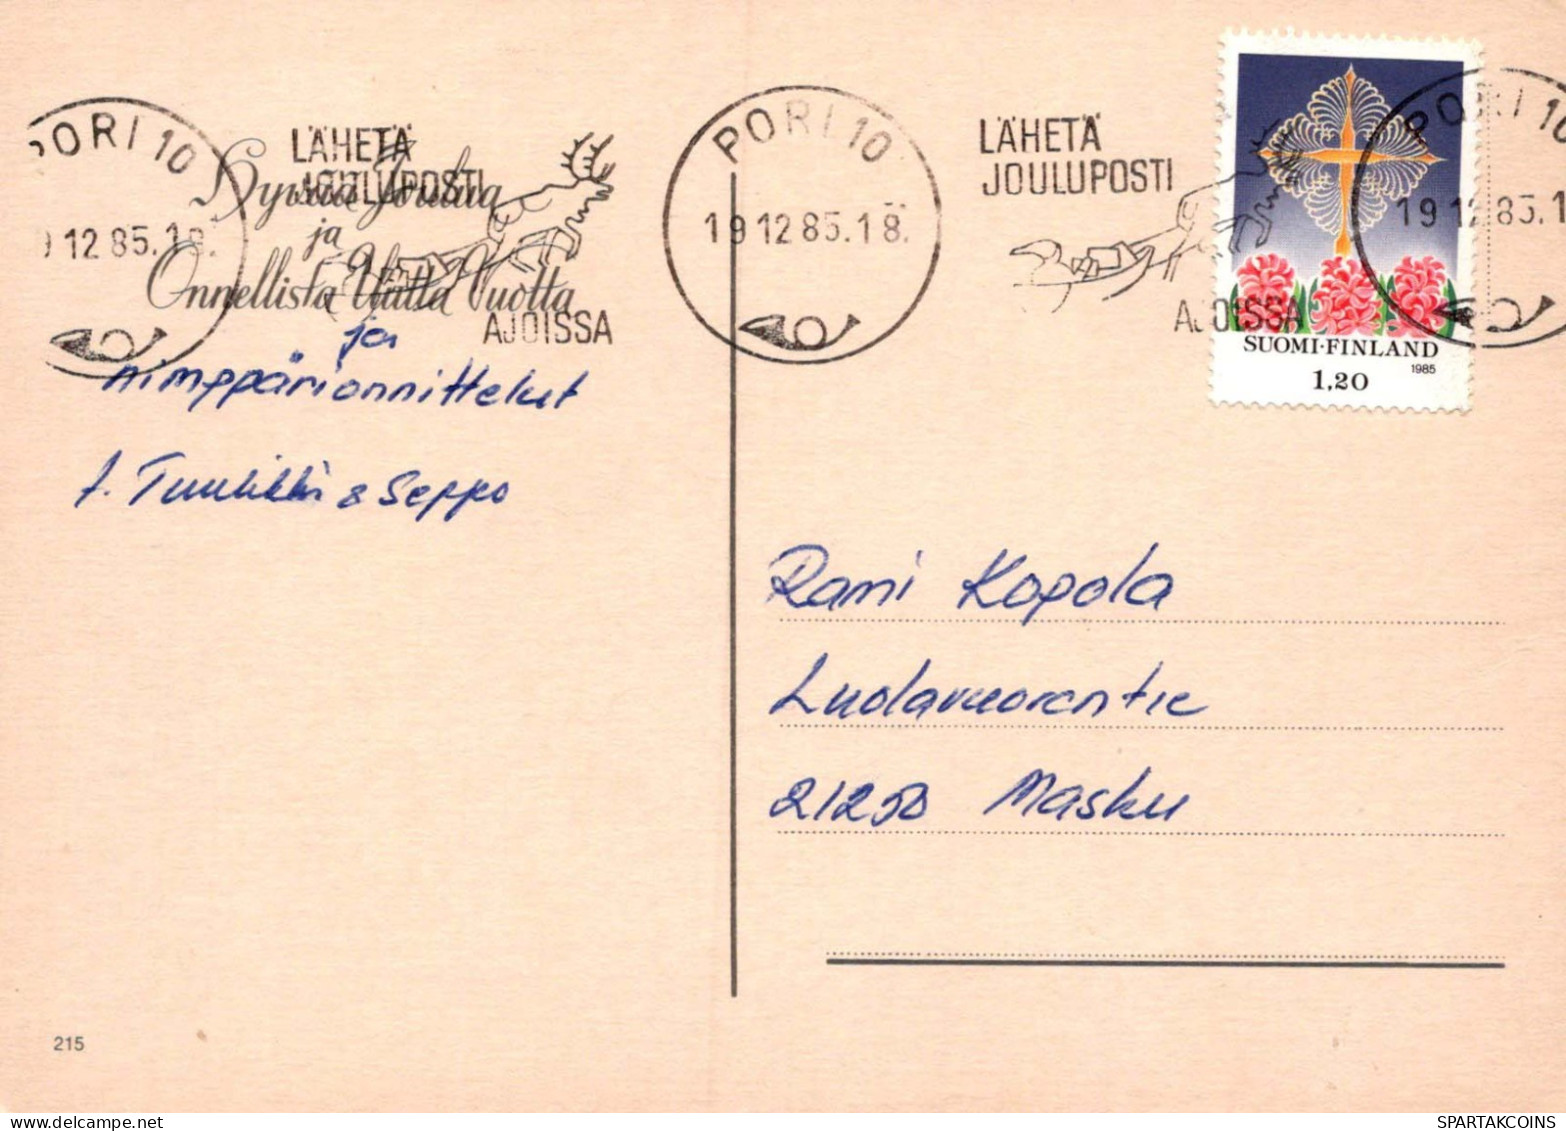 PORI 10
19.12.85.18.
LÄHETÄ
JOULUPOSTI
AJOISSA
Hyvää Joulua
ja
Onnellista Uutta Vuotta
ja
nimppärionnittelut
t. Tuulikki & Seppo
PORI 10
19 12 85.18.
LÄHETÄ
JOULUPOSTI
AJOISSA
PORI 10
19 12 85.1
SUOMI·FINLAND
1985
1,20
Rami Kopola
Luolavuorentie
21250 Masku
215
SPARTAKCOINS